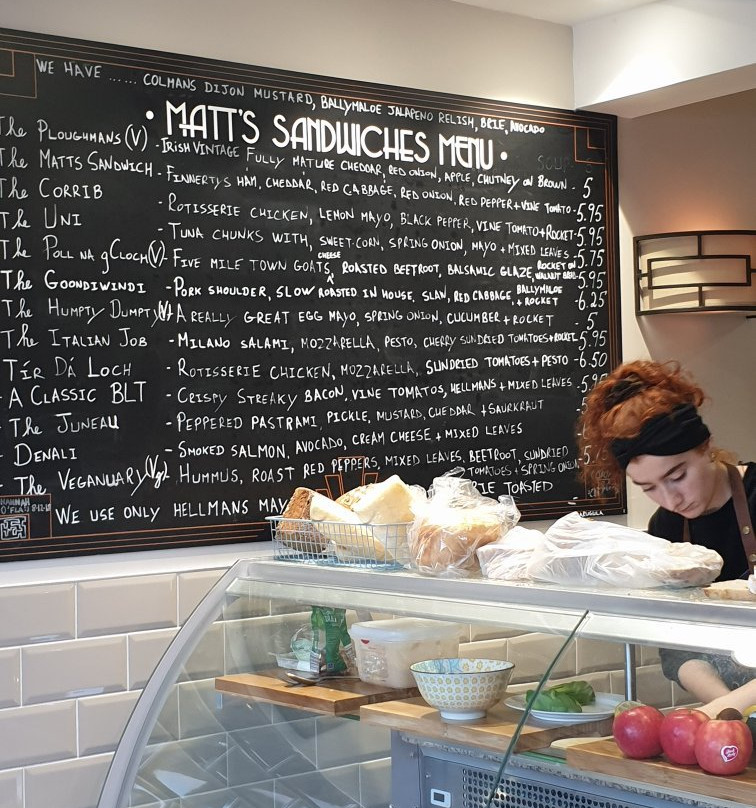 WE HAVE ...... COLMANS DIJON MUSTARD, BALLYMALOE JALAPENO RELISH, BRIE, AVOCADO
• MATT'S SANDWICHES MENU •
The PLOUGHMANS (V) - IRISH VINTAGE FULLY MATURE CHEDDAR, RED ONION, APPLE, CHUTNEY ON BROWN - 5
The MATTS SANDWICH - FINNERTYS HAM, CHEDDAR, RED CABBAGE, RED ONION, RED PEPPER + VINE TOMATO - 5.95
The CORRIB - ROTISSERIE CHICKEN, LEMON MAYO, BLACK PEPPER, VINE TOMATO + ROCKET - 5.95
The UNI - TUNA CHUNKS WITH, SWEETCORN, SPRING ONION, MAYO + MIXED LEAVES - 5.75
The POLL NA gCLOCH (V) - FIVE MILE TOWN GOATS CHEESE, ROASTED BEETROOT, BALSAMIC GLAZE, ROCKET ON WALNUT BREAD 5.95
The GOONDIWINDI - PORK SHOULDER, SLOW ROASTED IN HOUSE, SLAW, RED CABBAGE, BALLYMALOE + ROCKET - 6.25
The HUMPTY DUMPTY (V) - A REALLY GREAT EGG MAYO, SPRING ONION, CUCUMBER + ROCKET - 5
The ITALIAN JOB - MILANO SALAMI, MOZZARELLA, PESTO, CHERRY SUNDRIED TOMATOES + ROCKET - 5.95
- TÍR DÁ LOCH - ROTISSERIE CHICKEN, MOZZARELLA, SUNDRIED TOMATOES + PESTO - 6.50
- A CLASSIC BLT - CRISPY STREAKY BACON, VINE TOMATOS, HELLMANS + MIXED LEAVES
- The JUNEAU - PEPPERED PASTRAMI, PICKLE, MUSTARD, CHEDDAR + SAURKRAUT
- DENALI - SMOKED SALMON, AVOCADO, CREAM CHEESE + MIXED LEAVES
- The VEGANUARY (Vg) HUMMUS, ROAST RED PEPPERS, MIXED LEAVES, BEETROOT, SUNDRIED TOMATOES + SPRING ONION
WE USE ONLY HELLMANS MAY
TOASTED
HANNAH
O'FLA